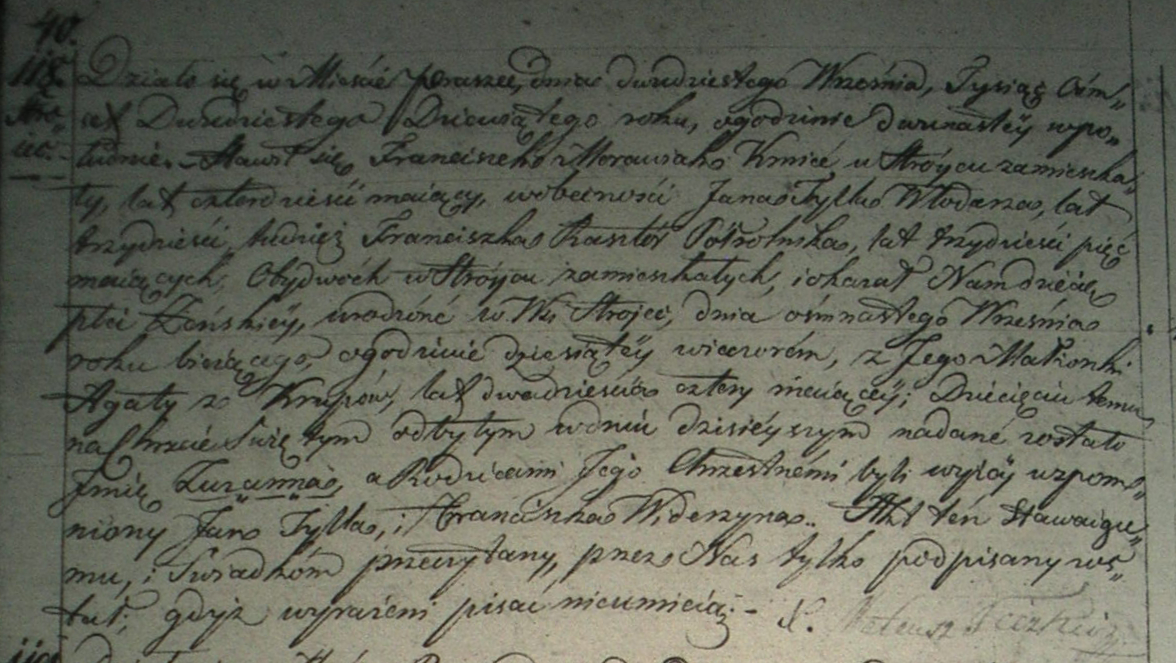 40.
118.
Działo się w Mieście Praszce, dnia dwudziestego Września, Tysiąc Ośm„
Stro„
set Dwudziestego Dziewiątego roku, ogodzinie dwunastey wpo„
iec.
łudnie. Stawił się Franciszek Morawiak Kmieć w Stróycu zamieszka„
ły, lat czterdzieści maiący, wobecności Jana Tylka Włodarza, lat
trzydzieści, tudzież Franciszka Półrolnika, lat trzydzieści pięć
maiących, Obydwóch w Stróycu zamieszkałych, i okazał Nam dziecię
płci Żeńskiéy, urodzóné w Wsi Strojec, dnia ośmnastego Września
roku bieżącego, ogodzinie dziesiątéy wieczorém, z Jego Małżonki
Agaty z Krupów, lat dwadzieścia cztery maiącéy; Dziecięciu temu
na Chrzcie Swiętym odbytym wdniu dzisiéyszym nadané zostało
Jmię Zuzanna, a Rodzicami Jego Chrzestnémi byli wyżéy wzpom„
niony Jan Tylka, i Franciszka. Akt ten Stawaiące„
mu, i Swiadkóm przeczytany, przez Nas tylko podpisany zos„
tał; gdyż wyrażeni pisać nieumieią.- X. Mateusz
119